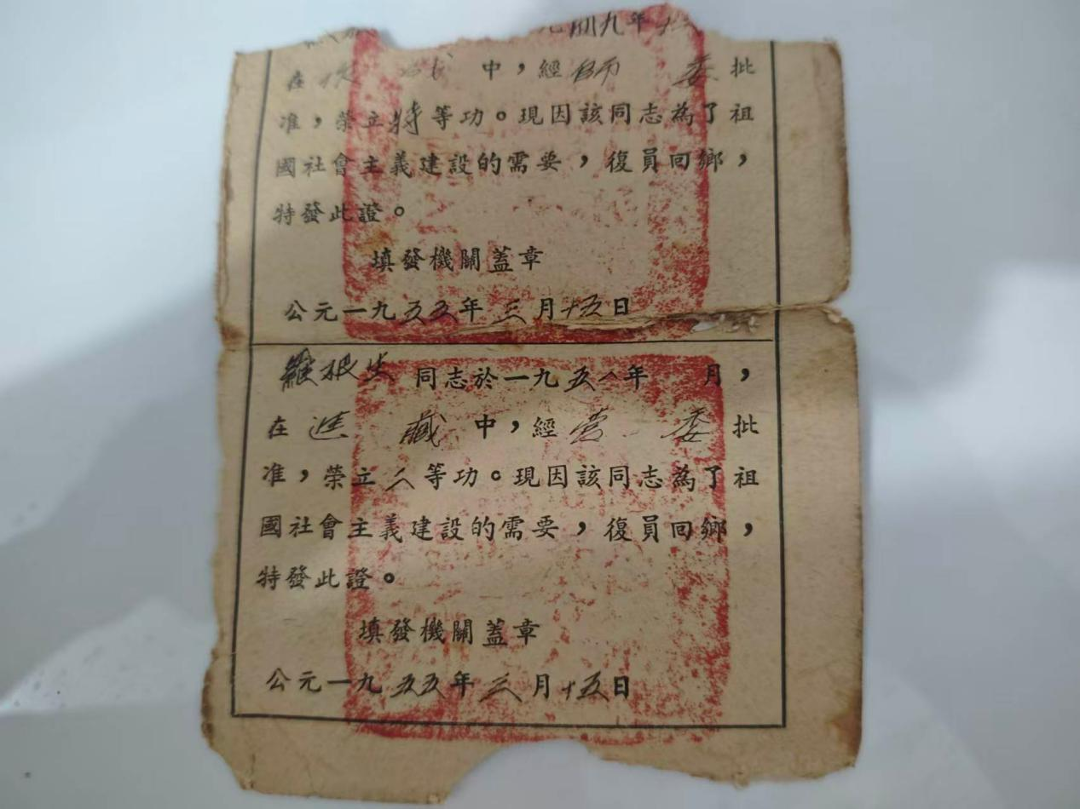 九年十
在 中，經師 委批
准，榮立特等功。現因該同志為了祖
國社會主義建設的需要，復員回鄉，
特發此證。
填發機關蓋章
公元一九五五年 三月十五日
羅根 同志於一九五一年 月，
在進 藏 中，經营 委批
准，榮立 等功。現因該同志為了祖
國社會主義建設的需要，復員回鄉，
特發此證。
填發機關蓋章
公元一九五五年 三月十五日